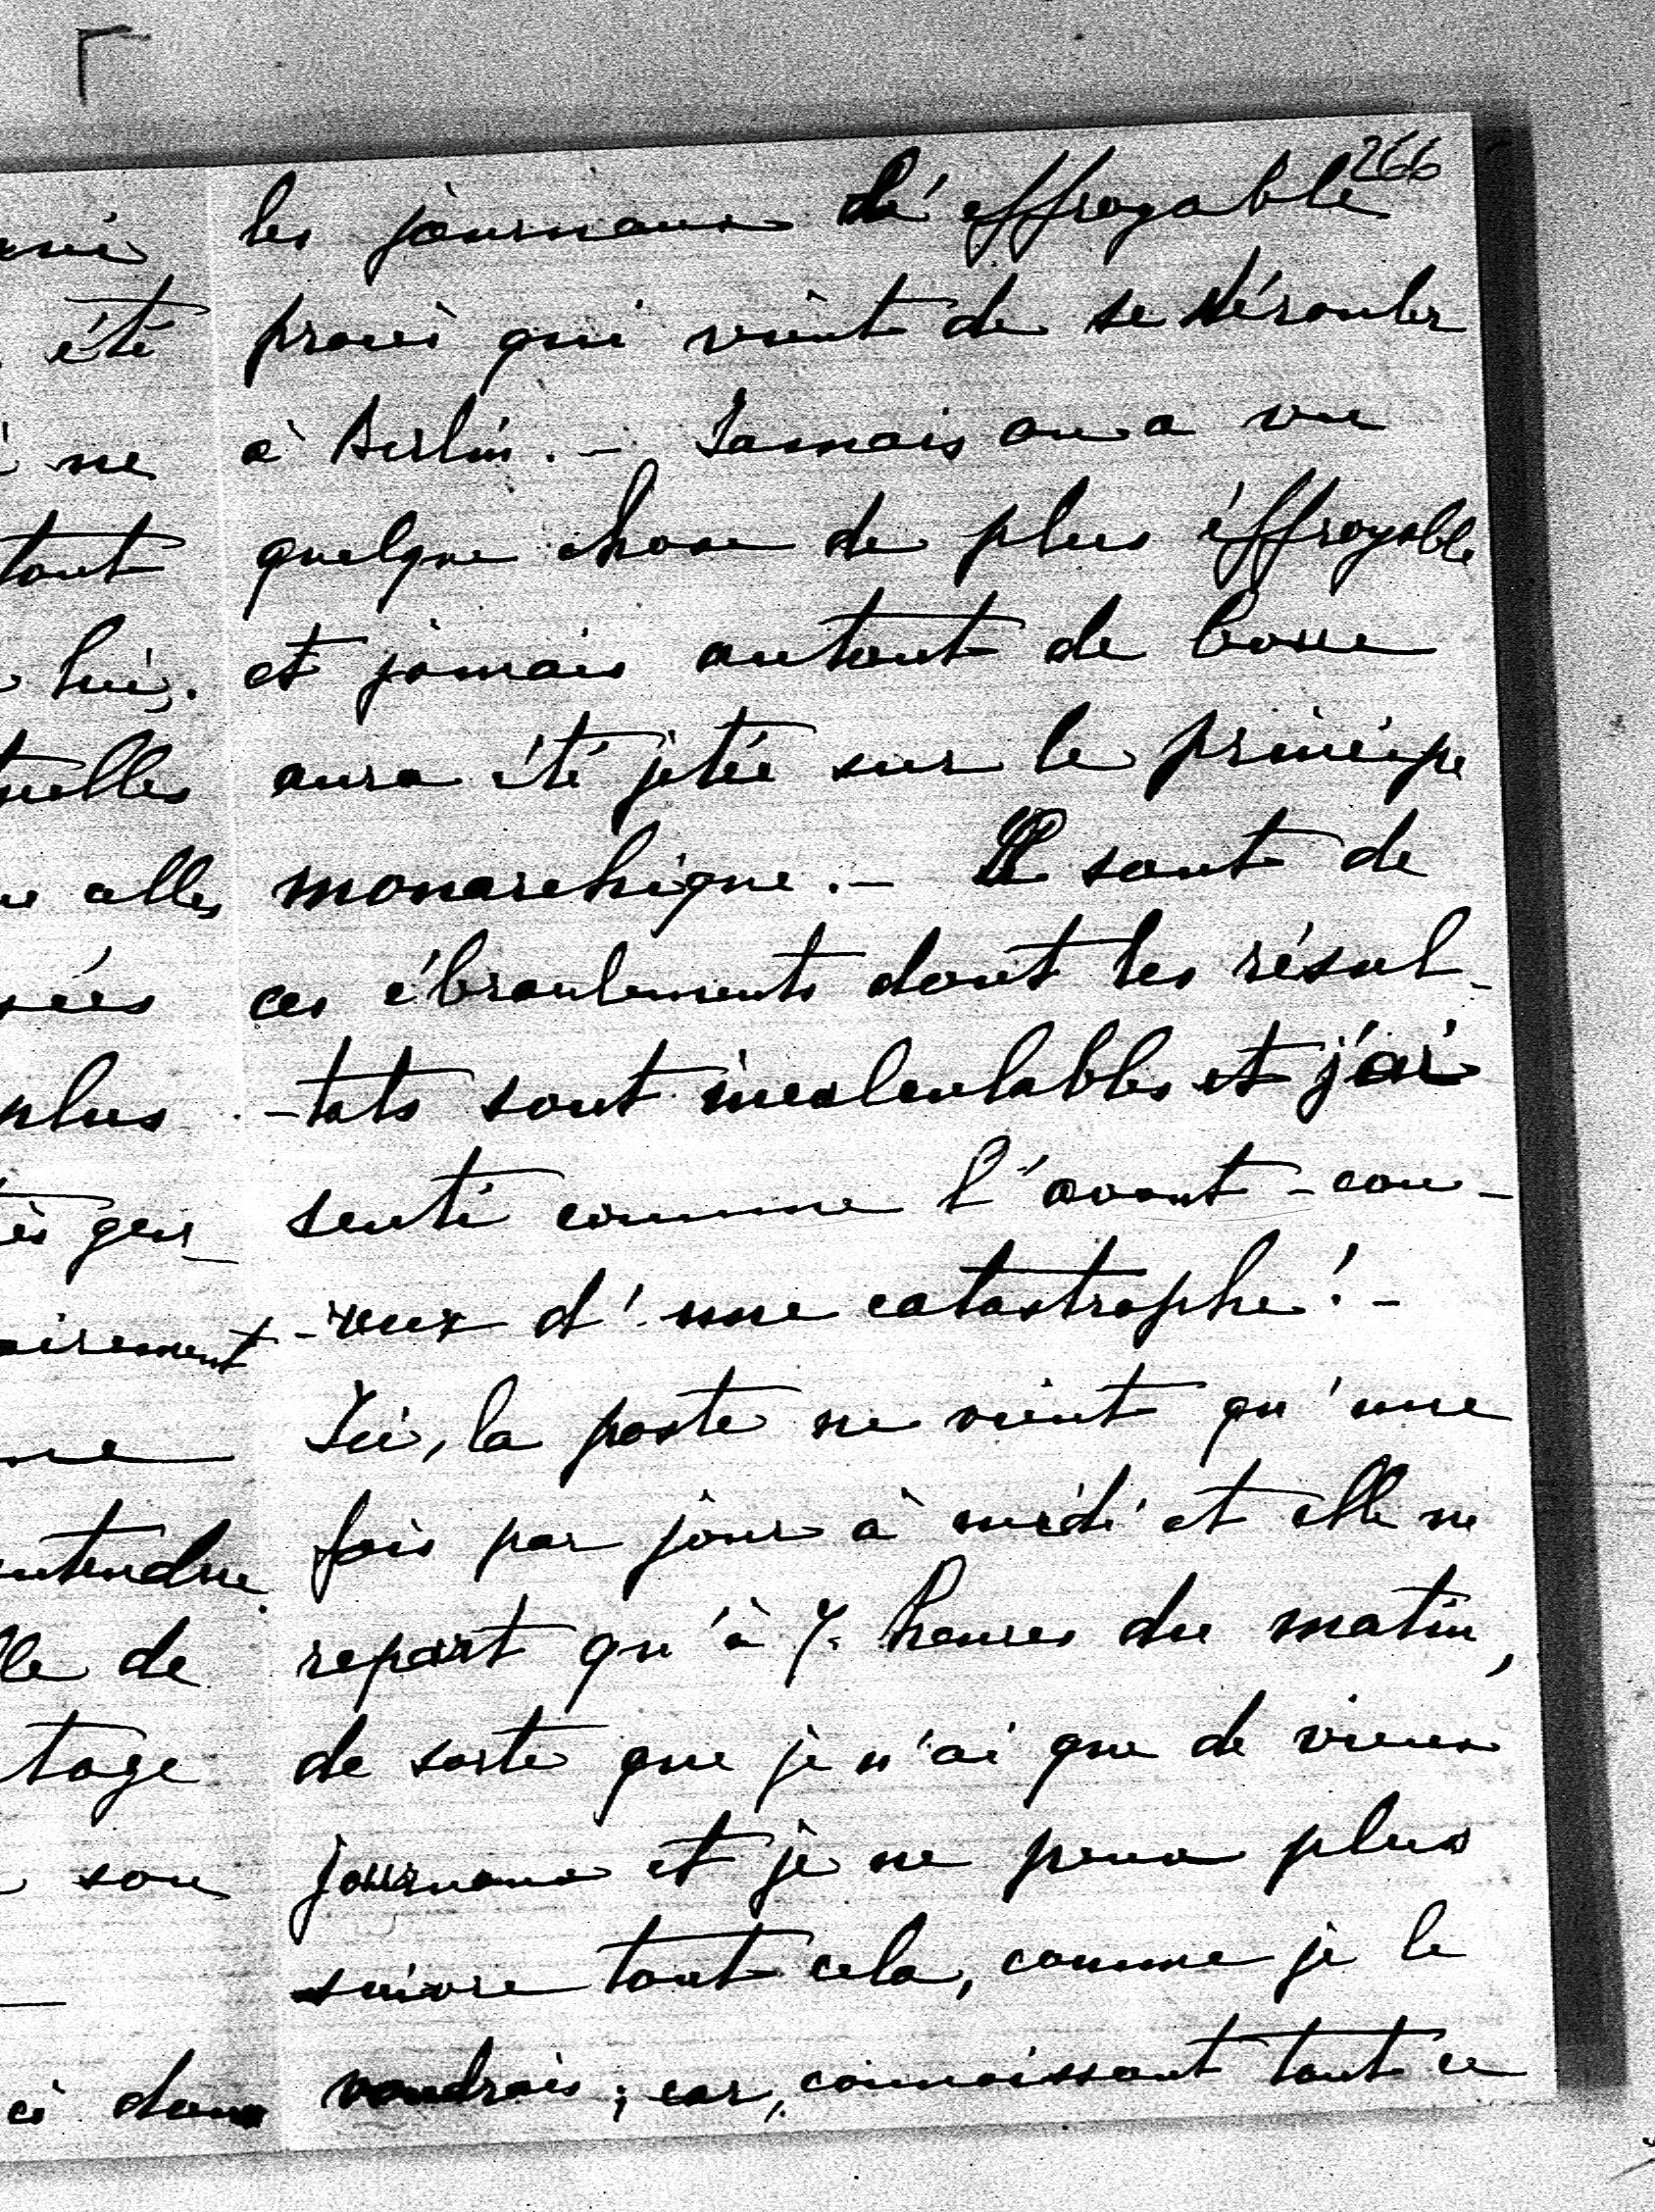 266
les journaux l'éffroyable
procès qui vient de se dérouler
à Berlin. – Jamais on a vu
quelque chose de plus éffroyable
et jamais autant de boue
aura été jetée sur le principe
monarchique. – Il sont de
ces ébranlements dont les résul-
-tats sont incalculables et j'ai
senti comme l'avant-cou-
-reur d'une catastrophe! –
Ici, la poste ne vient qu'une
fois par jour à midi et elle ne
repart qu'à 7 heures du matin,
de sorte que je n'ai que de vieux
journaux et je ne peux plus
suivre tout cela, comme je le
voudrais; car, connaissant tout ce
été
ne
tout
lui.
elles
plus
airement
entendre.
de
tage
son
dans